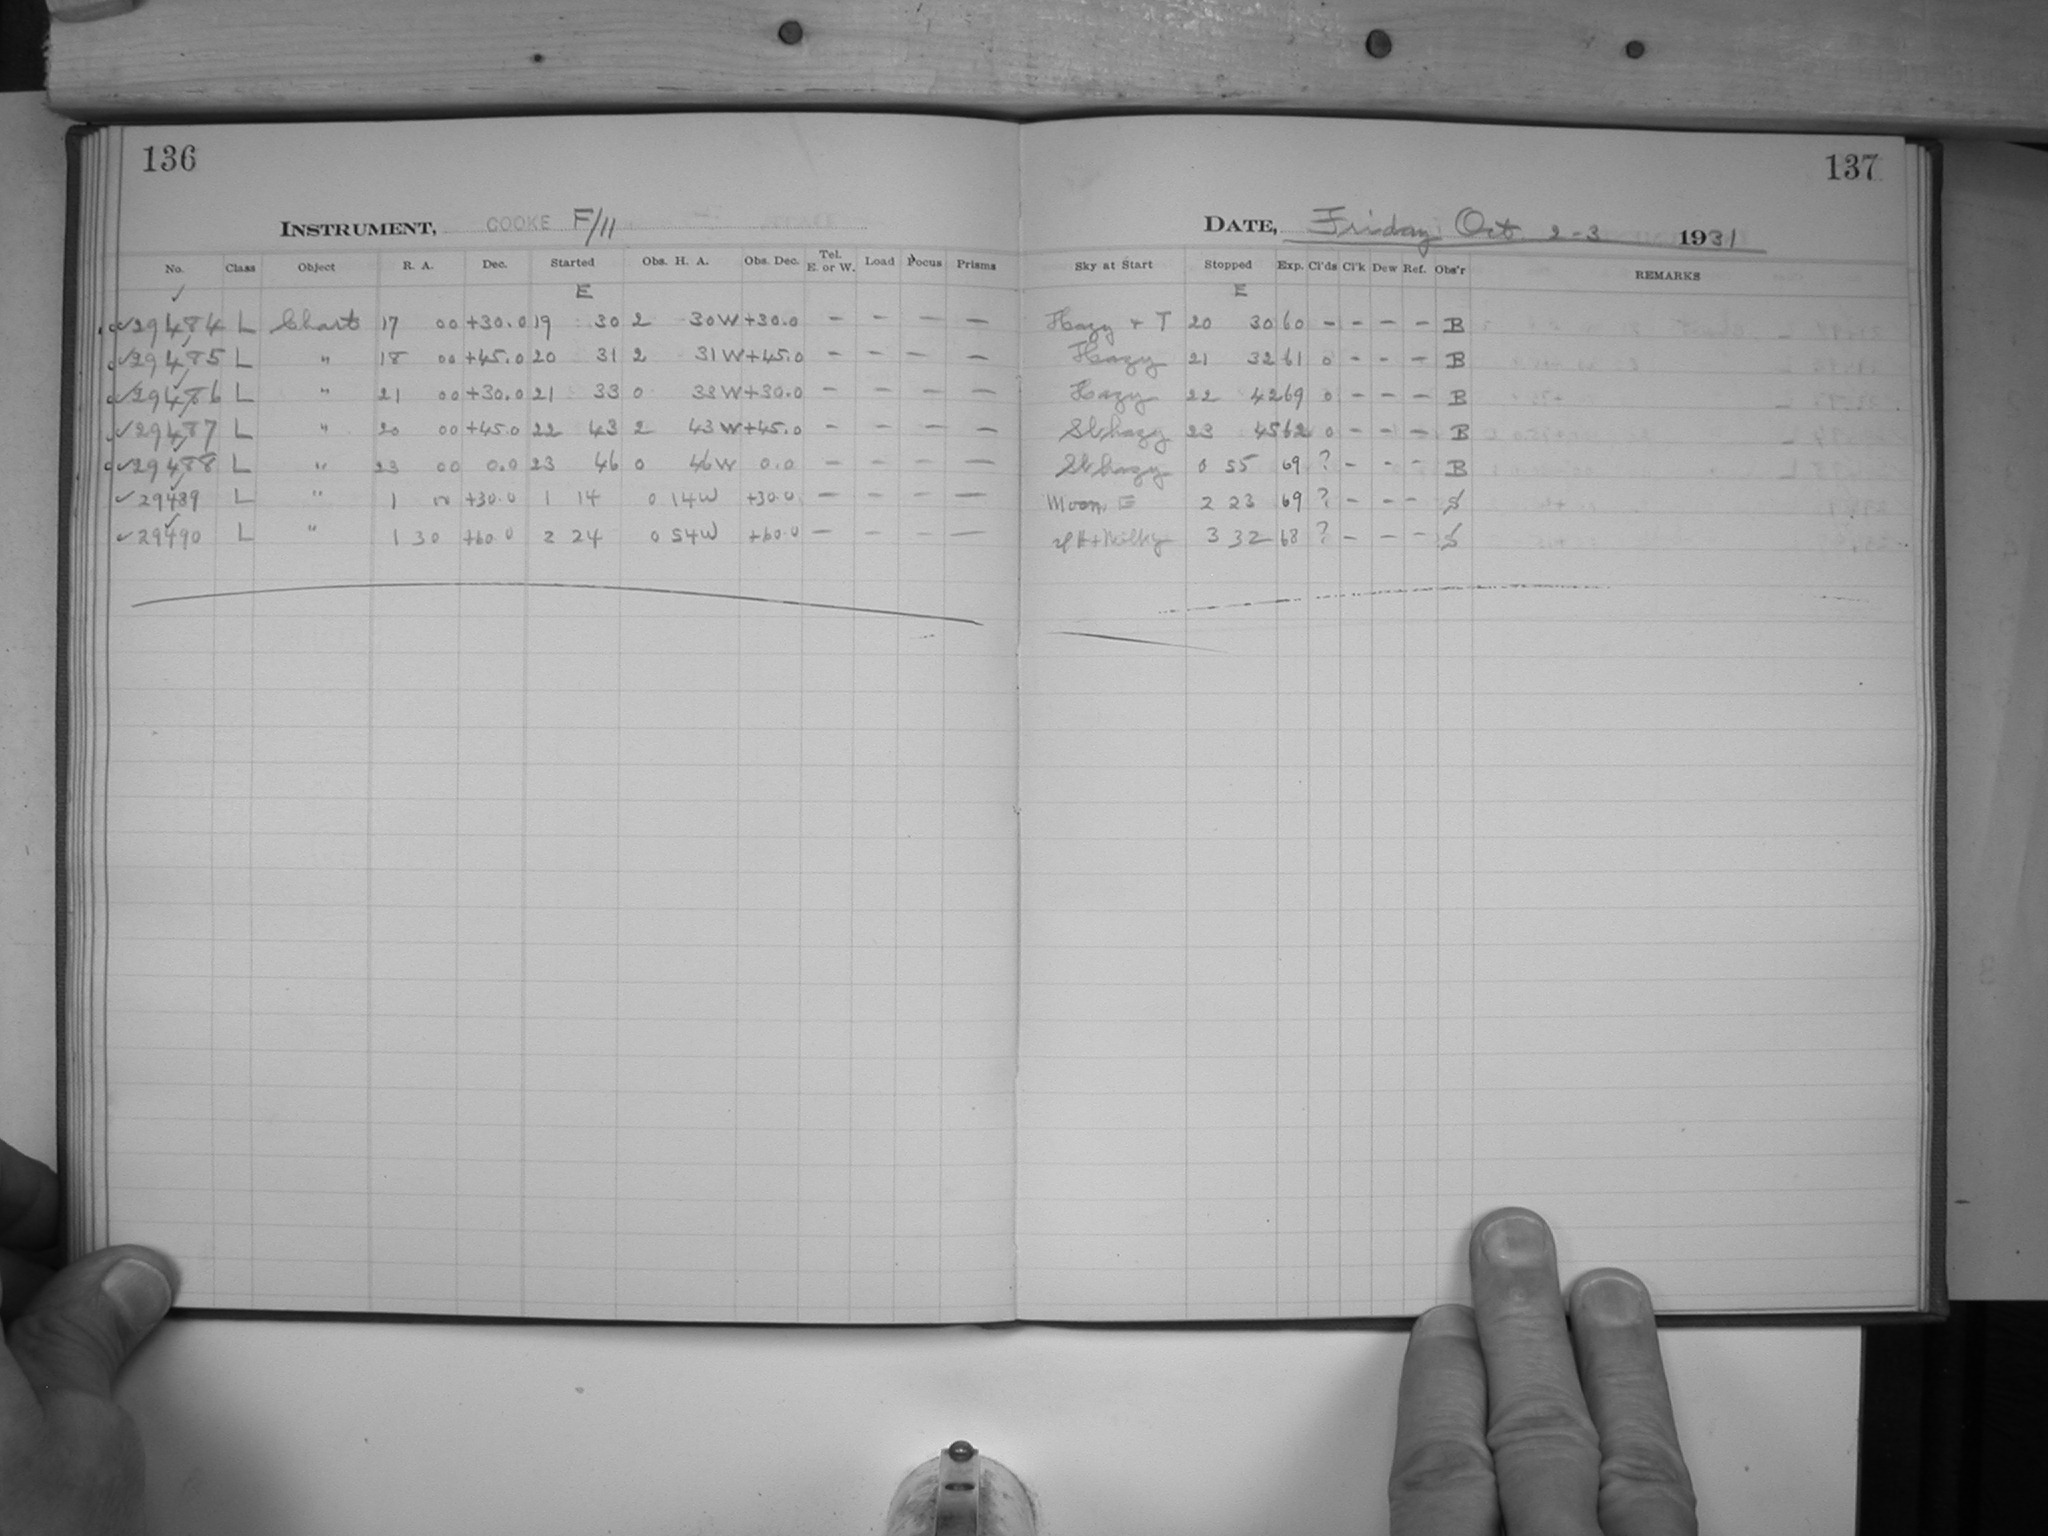 136
INSTRUMENT, COOKE F/11
No. Class Object R. A. Dec. Started Obs. H. A. Obs. Dec. Tel. E. or W. Load Focus Prisms
E
✓29484 L Chart 17 00 +30.0 19 30 2 30W +30.0 – – – –
✓29485 L " 18 00 +45.0 20 31 2 31W +45.0 – – – –
✓29486 L " 21 00 +30.0 21 33 0 33W +30.0 – – – –
✓29487 L " 20 00 +45.0 22 43 2 43W +45.0 – – – –
✓29488 L " 23 00 0.0 23 46 0 46W 0.0 – – – –
✓29489 L " 1 00 +30.0 1 14 0 14W +30.0 – – – –
✓29490 L " 1 30 +60.0 2 24 0 54W +60.0 – – – –
137
DATE, Friday Oct 2-3 1931
Sky at Start Stopped Exp. Cl'ds Cl'k Dew Ref. Obs'r REMARKS
E
Hazy + T 20 30 60 – – – – B
Hazy 21 32 61 0 – – – B
Hazy 22 42 69 0 – – – B
Sl hazy 23 45 62 0 – – – B
Sl hazy 0 55 69 ? – – – B
Moon E 2 23 69 ? – – – S
+ Milky 3 32 68 ? – – – S